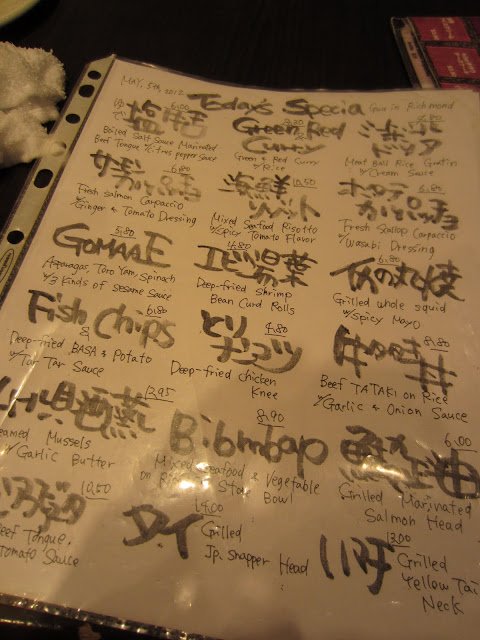 MAY, 5th, 2012
Today's Special
Guu in Richmond
6.00
ゆで塩舌
Boiled Salt Sauce Marinated
Beef Tongue w/Citrus pepper sauce
Green Red
Curry
Green & Red Curry
w/Rice
Meat Ball Rice Gratin
w/Cream Sauce
6.80
サーモン
カルパッチョ
Fresh salmon Carpaccio
w/Ginger & Tomato Dressing
10.50
海鮮
リゾット
Mixed Seafood Risotto
w/Spicy Tomato Flavor
6.80
ホタテ
カルパッチョ
Fresh Scallop Carpaccio
w/Wasabi Dressing
GOMAAE
Asparagus, Toro Yam, Spinach
w/3 Kinds of Sesame Sauce
4.80
エビ湯葉
Deep-fried Shrimp
Bean Curd Rolls
6.80
イカの丸焼
Grilled whole squid
w/Spicy Mayo
Fish & Chips
6.80
Deep-fried BASA & Potato
w/Tar Tar Sauce
4.80
とり
ナンコツ
Deep-fried chicken
Knee
8.80
牛タタキ丼
Beef TATAKI on Rice
w/Garlic & Onion Sauce
12.95
貝酒蒸
Steamed Mussels
w/Garlic Butter
8.90
Bibimbap
Mixed Seafood & Vegetable
on Rice Stone Bowl
6.00
Grilled Marinated
Salmon Head
10.50
Beef Tongue,
Tomato Sauce
14.00
タイ
Grilled
Jp. Snapper Head
Grilled
Yellow Tail
Neck